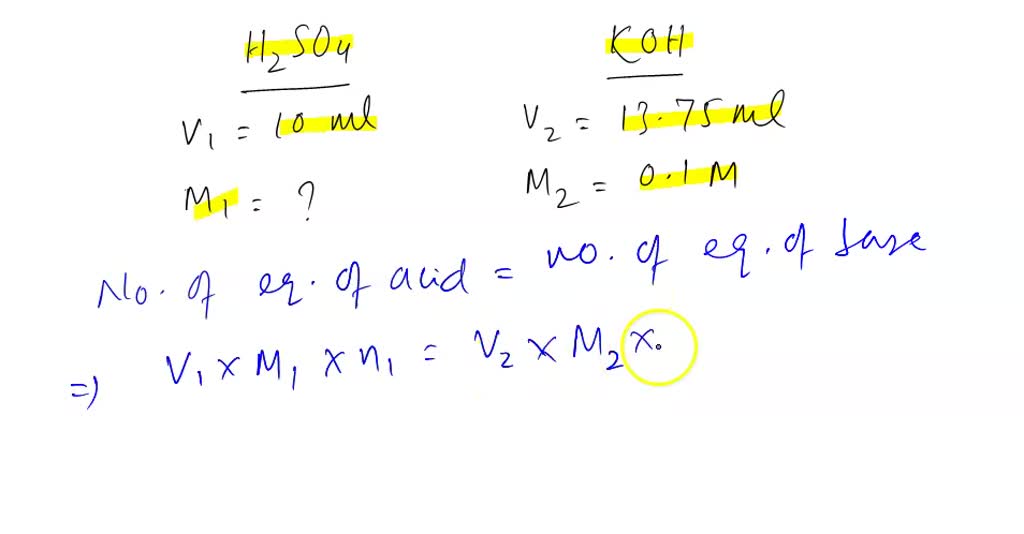 H₂SO₄ KOH
V₁ = 10 ml V₂ = 13.75 ml
M₁ = ? M₂ = 0.1 M
No. of eq. of acid = no. of eq. of base
=) V₁ × M₁ × n₁ = V₂ × M₂ ×